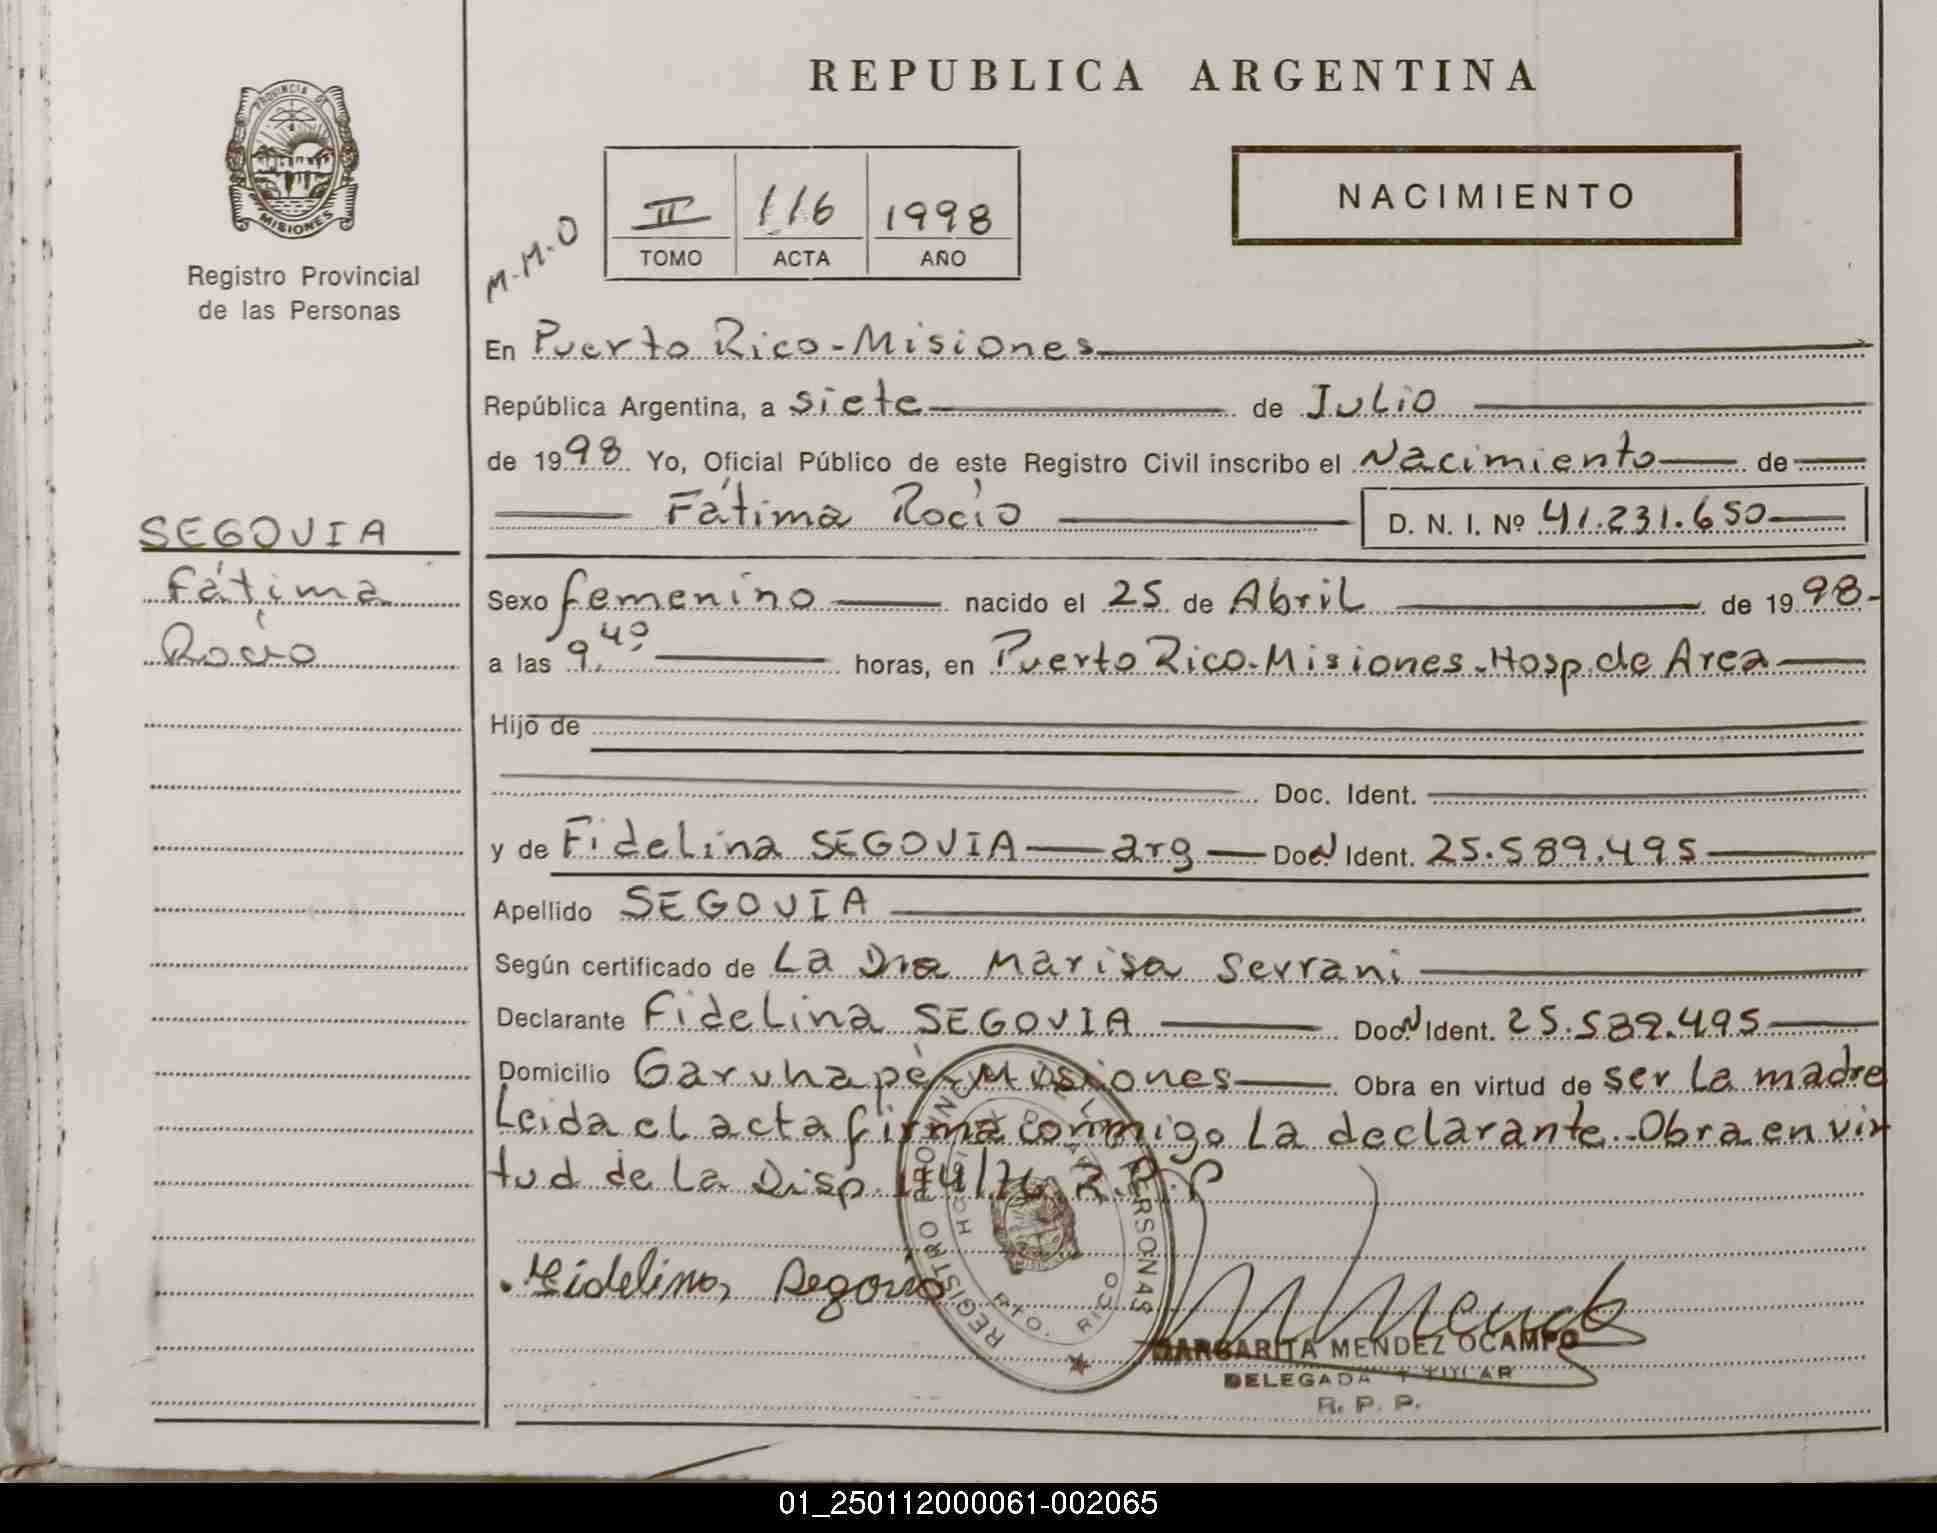 REPUBLICA ARGENTINA
PROVINCIA DE
MISIONES
Registro Provincial
de las Personas
M.M.O
II 116 1998
TOMO ACTA AÑO
NACIMIENTO
En Puerto Rico - Misiones
República Argentina, a siete de Julio
de 1998 Yo, Oficial Público de este Registro Civil inscribo el Nacimiento de
Fátima Rocío D. N. I. Nº 41.231.650
SEGOVIA
Fátima
Rocío
Sexo femenino nacido el 25 de Abril de 1998-
a las 9,40 horas, en Puerto Rico-Misiones-Hosp. de Area
Hijo de
Doc. Ident.
y de Fidelina SEGOVIA arg Doc. Ident. 25.589.495
Apellido SEGOVIA
Según certificado de La Dra Marisa Serrani
Declarante Fidelina SEGOVIA Doc. Ident. 25.589.495
Domicilio Garuhapé-Misiones Obra en virtud de ser La madre
Leida el acta firma conmigo La declarante.-Obra en vir
tud de La Disp. R.P.P
Fidelina Segovia
REGISTRO PROVINCIAL PERSONAS
PTO. RICO
MARGARITA MENDEZ OCAMPO
DELEGADA TITULAR
R. P. P.
01_250112000061-002065